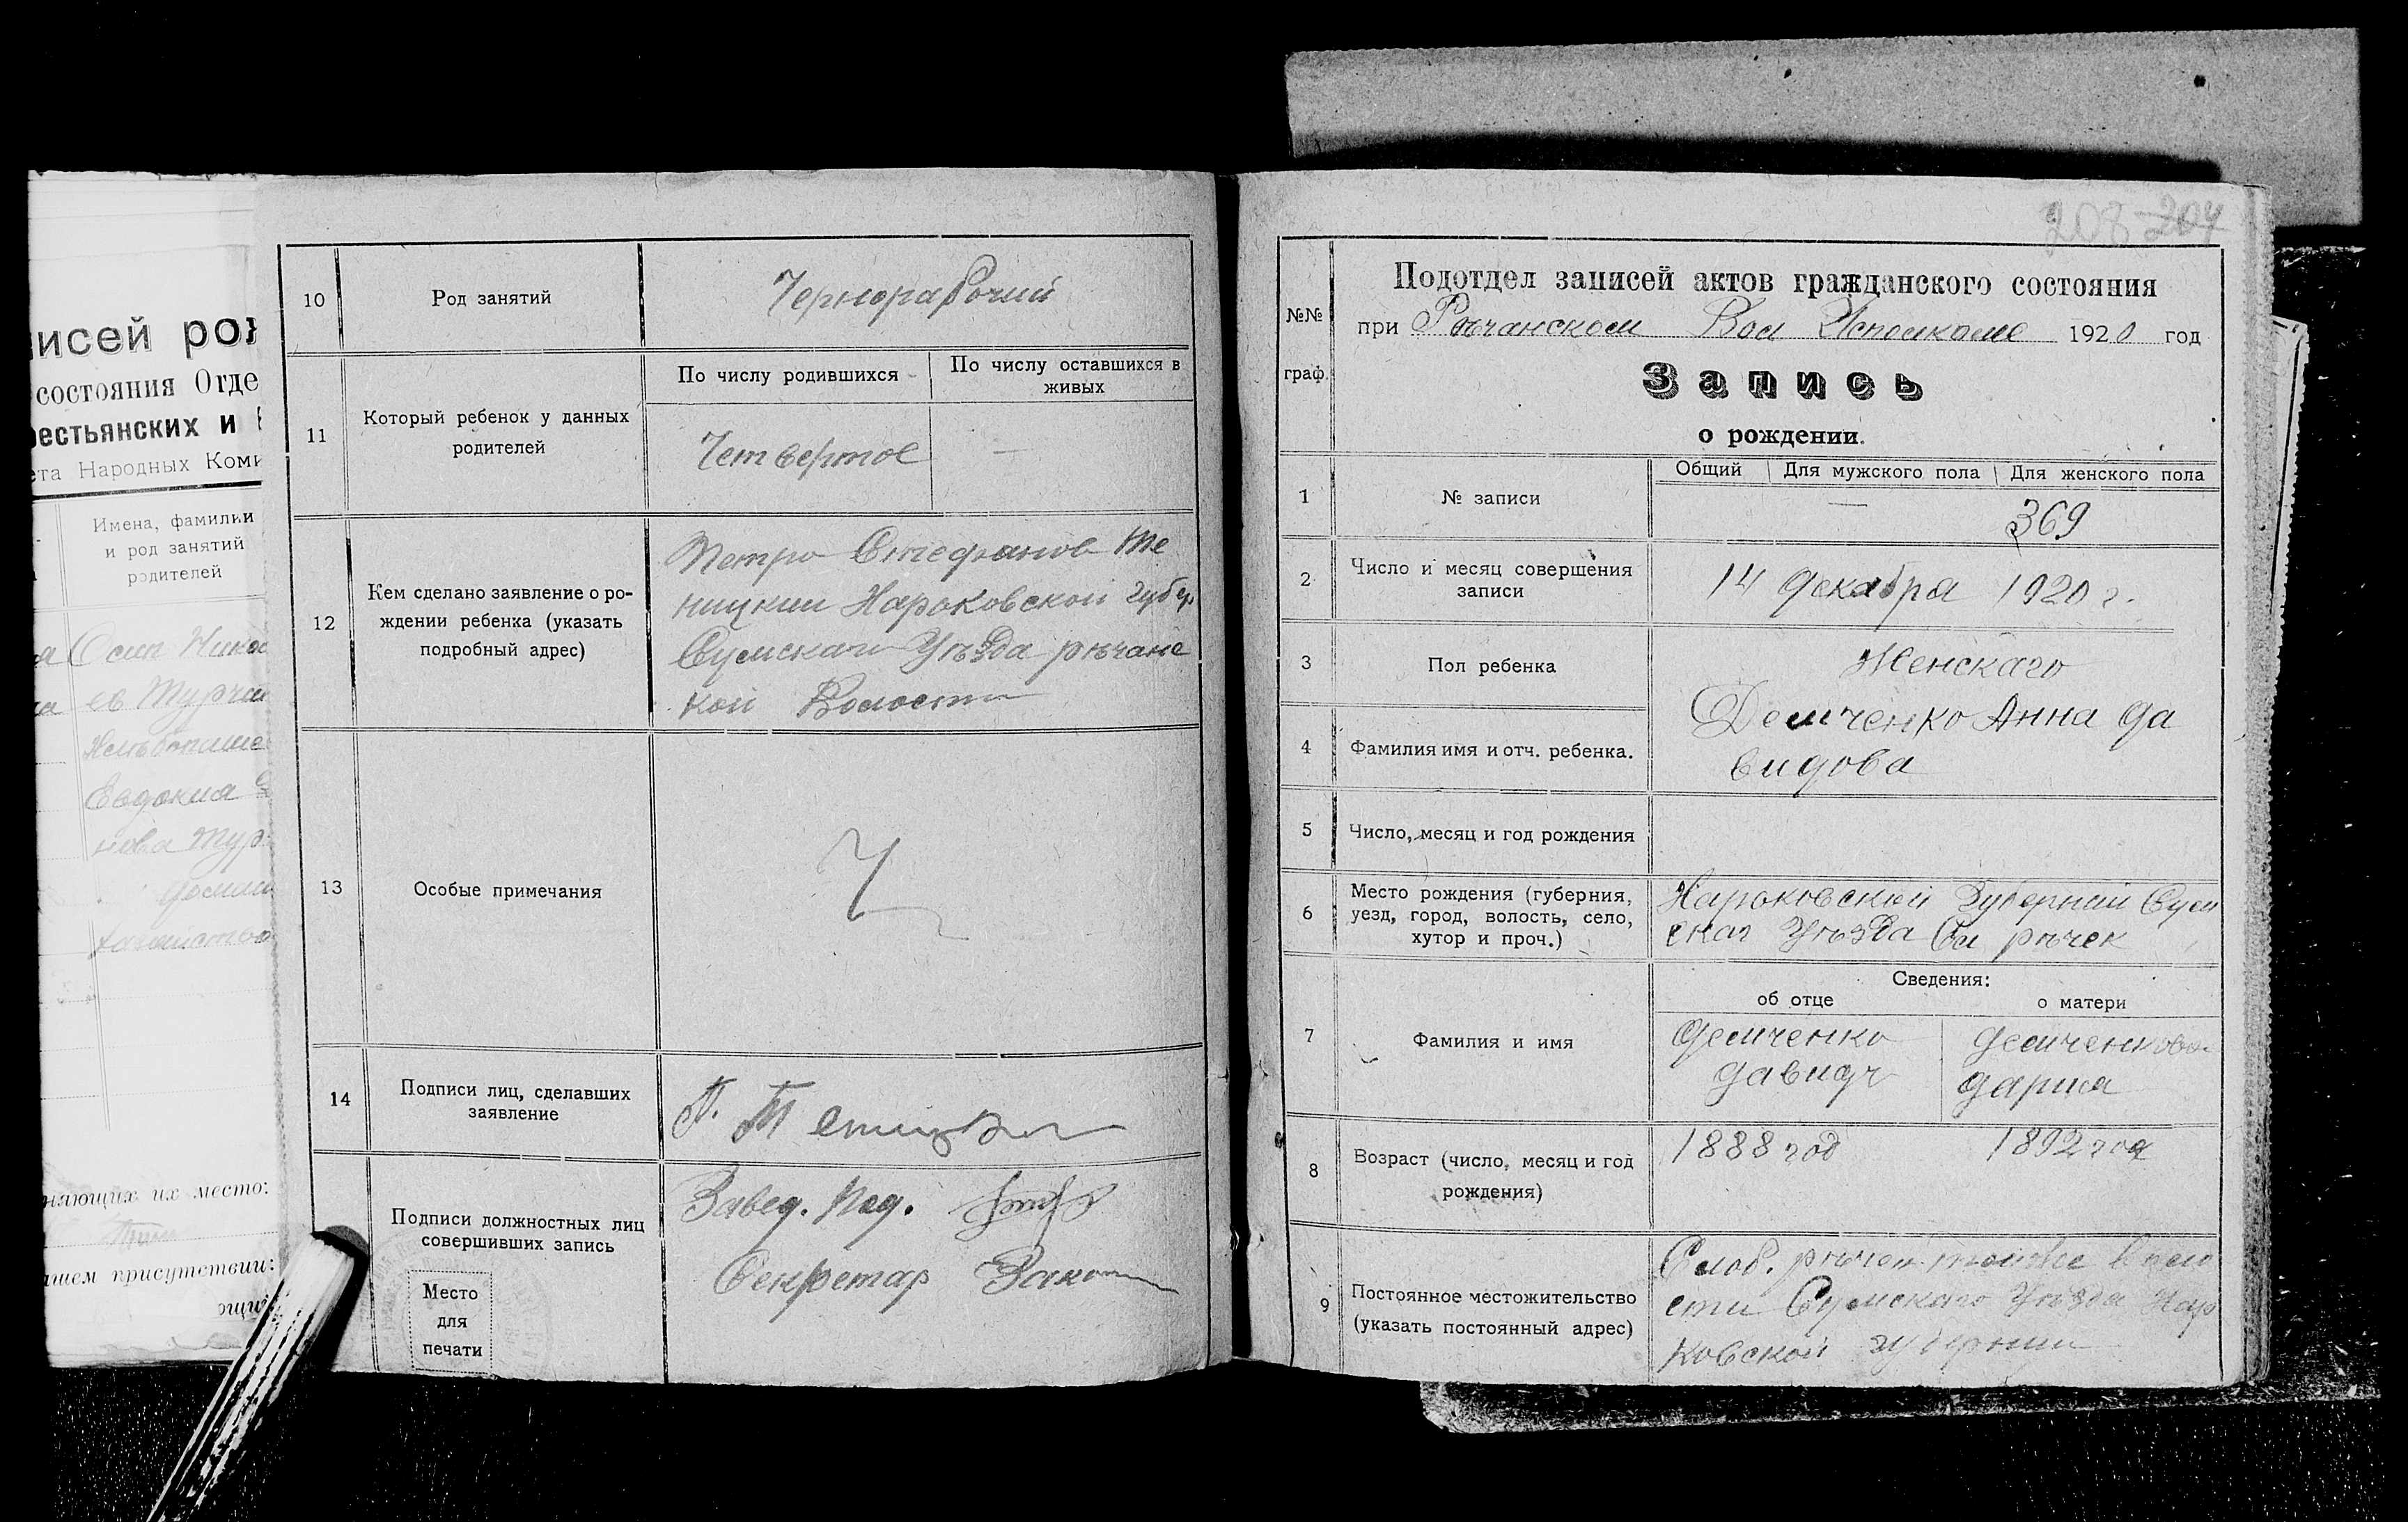 исей рож
состояния Отде
рестьянских и
ета Народных Коми
Имена, фамилии
и род занятий
родителей
Осип Никол
ев Турчи
Евдокия
нова Тур
няющих их место:
ашем присутствии:
10
Род занятий
Чернорабочий
11
Который ребенок у данных
родителей
По числу родившихся
По числу оставшихся в
живых
Четвертое
—
12
Кем сделано заявление о ро-
ждении ребенка (указать
подробный адрес)
Петро Стефанов Те
ницкий Харьковской губер
Сумскаго Уѣзда рѣчанс
кой Волости
13
Особые примечания
14
Подписи лиц, сделавших
заявление
П. Тeницкий
Подписи должностных лиц
совершивших запись
Завед. Под.
Секретар
Место
для
печати
208 204
№№
граф.
Подотдел записей актов гражданского состояния
при Рѣчанском Вол Исполкоме 1920 год
Запись
о рождении.
1
№ записи
Общий Для мужского пола Для женского пола
— 369
2
Число и месяц совершения
записи
14 декабря 1920 г.
3
Пол ребенка
Женскаго
4
Фамилия имя и отч. ребенка.
Демченко Анна Да
видова
5
Число, месяц и год рождения
6
Место рождения (губерния,
уезд, город, волость, село,
хутор и проч.)
Харьковской Губернии Сум
скаг Уѣзда Сл рѣчек
7
Фамилия и имя
Сведения:
об отце
о матери
Демченко
Давидъ
Демченкова
Дария
8
Возраст (число, месяц и год
рождения)
1888 год
1892 год
9
Постоянное местожительство
(указать постоянный адрес)
Слоб. рѣчек тойже Воло
сти Сумскаго Уѣзда Хар
ковской губернии